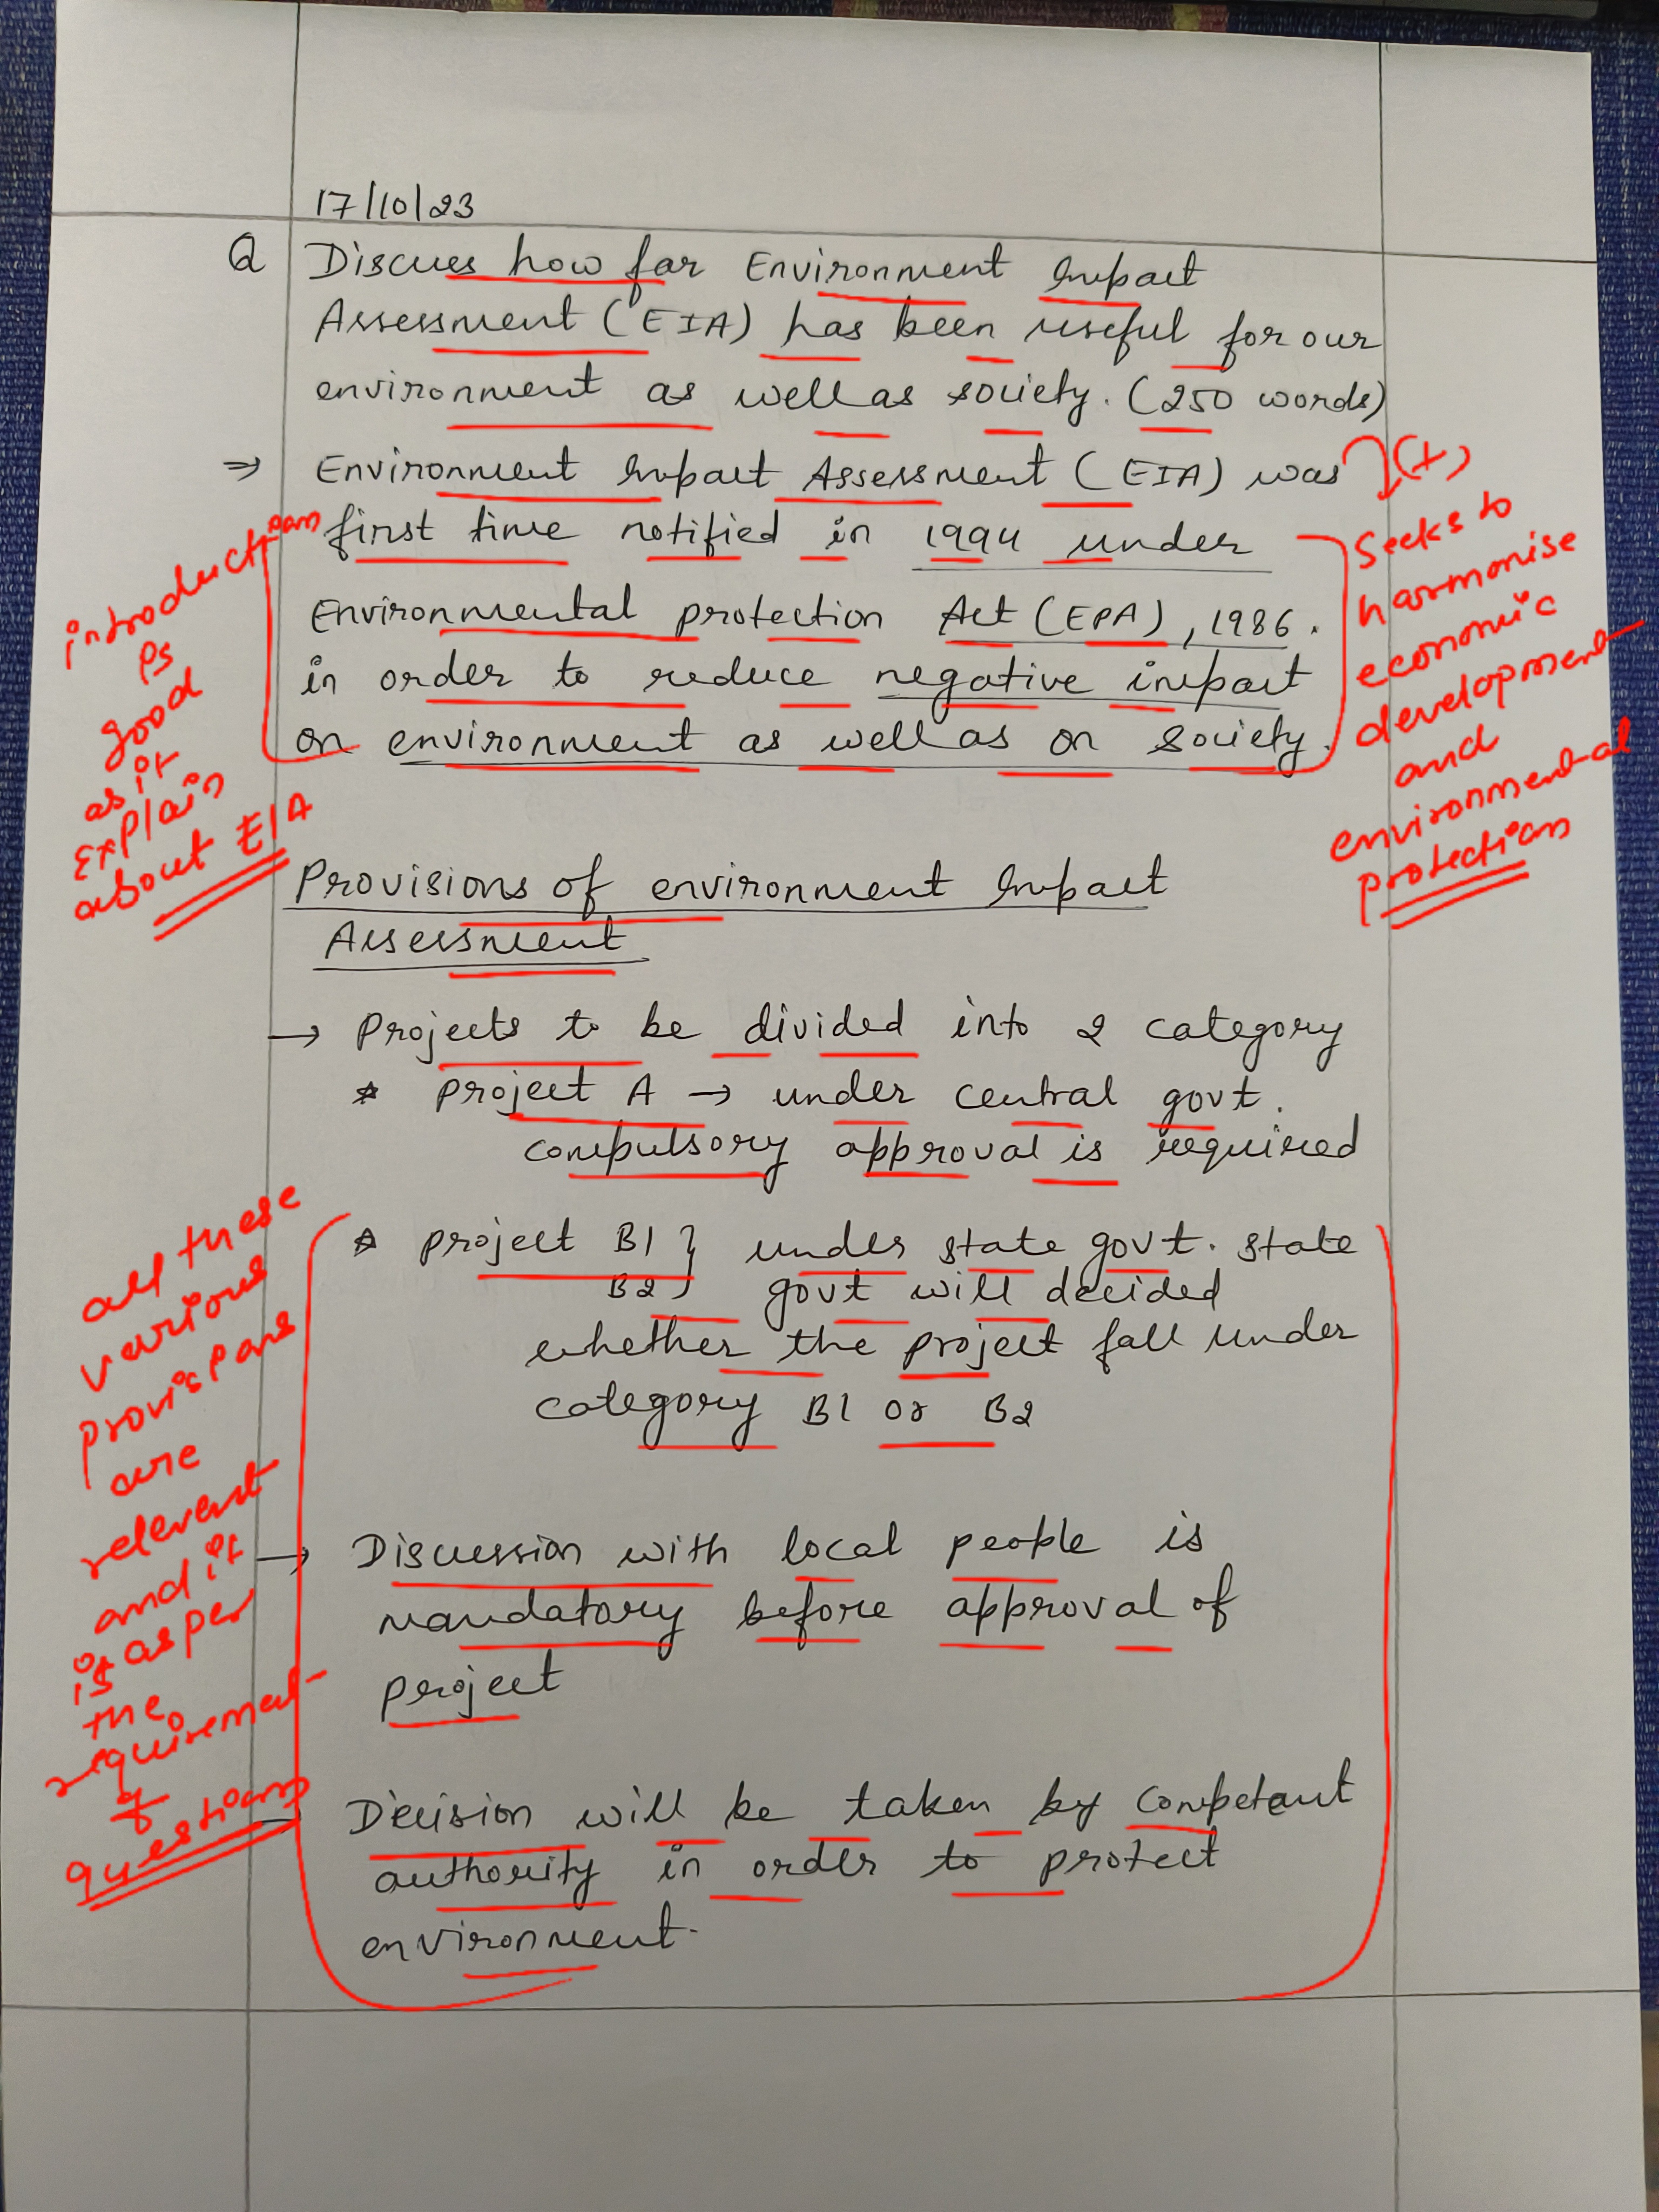 17/10/23
Q Discuss how far Environment Impact
Assessment (EIA) has been useful for our
environment as well as society. (250 words)
⇒ Environment Impact Assessment (EIA) was
first time notified in 1994 under
Environmental protection Act (EPA), 1986.
in order to reduce negative impact
on environment as well as on society.
(+)
Seeks to
harmonise
economic
development
and
environmental
protection
introduction
is
good
as it
explain
about EIA
Provisions of environment Impact
Assessment
→ Projects to be divided into 2 category
* project A → under central govt.
compulsory approval is required
* project B1 } under state govt. state
B2 } govt will decided
whether the project fall under
category B1 or B2
→ Discussion with local people is
mandatory before approval of
project
→ Decision will be taken by competant
authority in order to protect
environment.
all these
various
provisions
are
relevant
and it
is as per
the
requirement
of
question